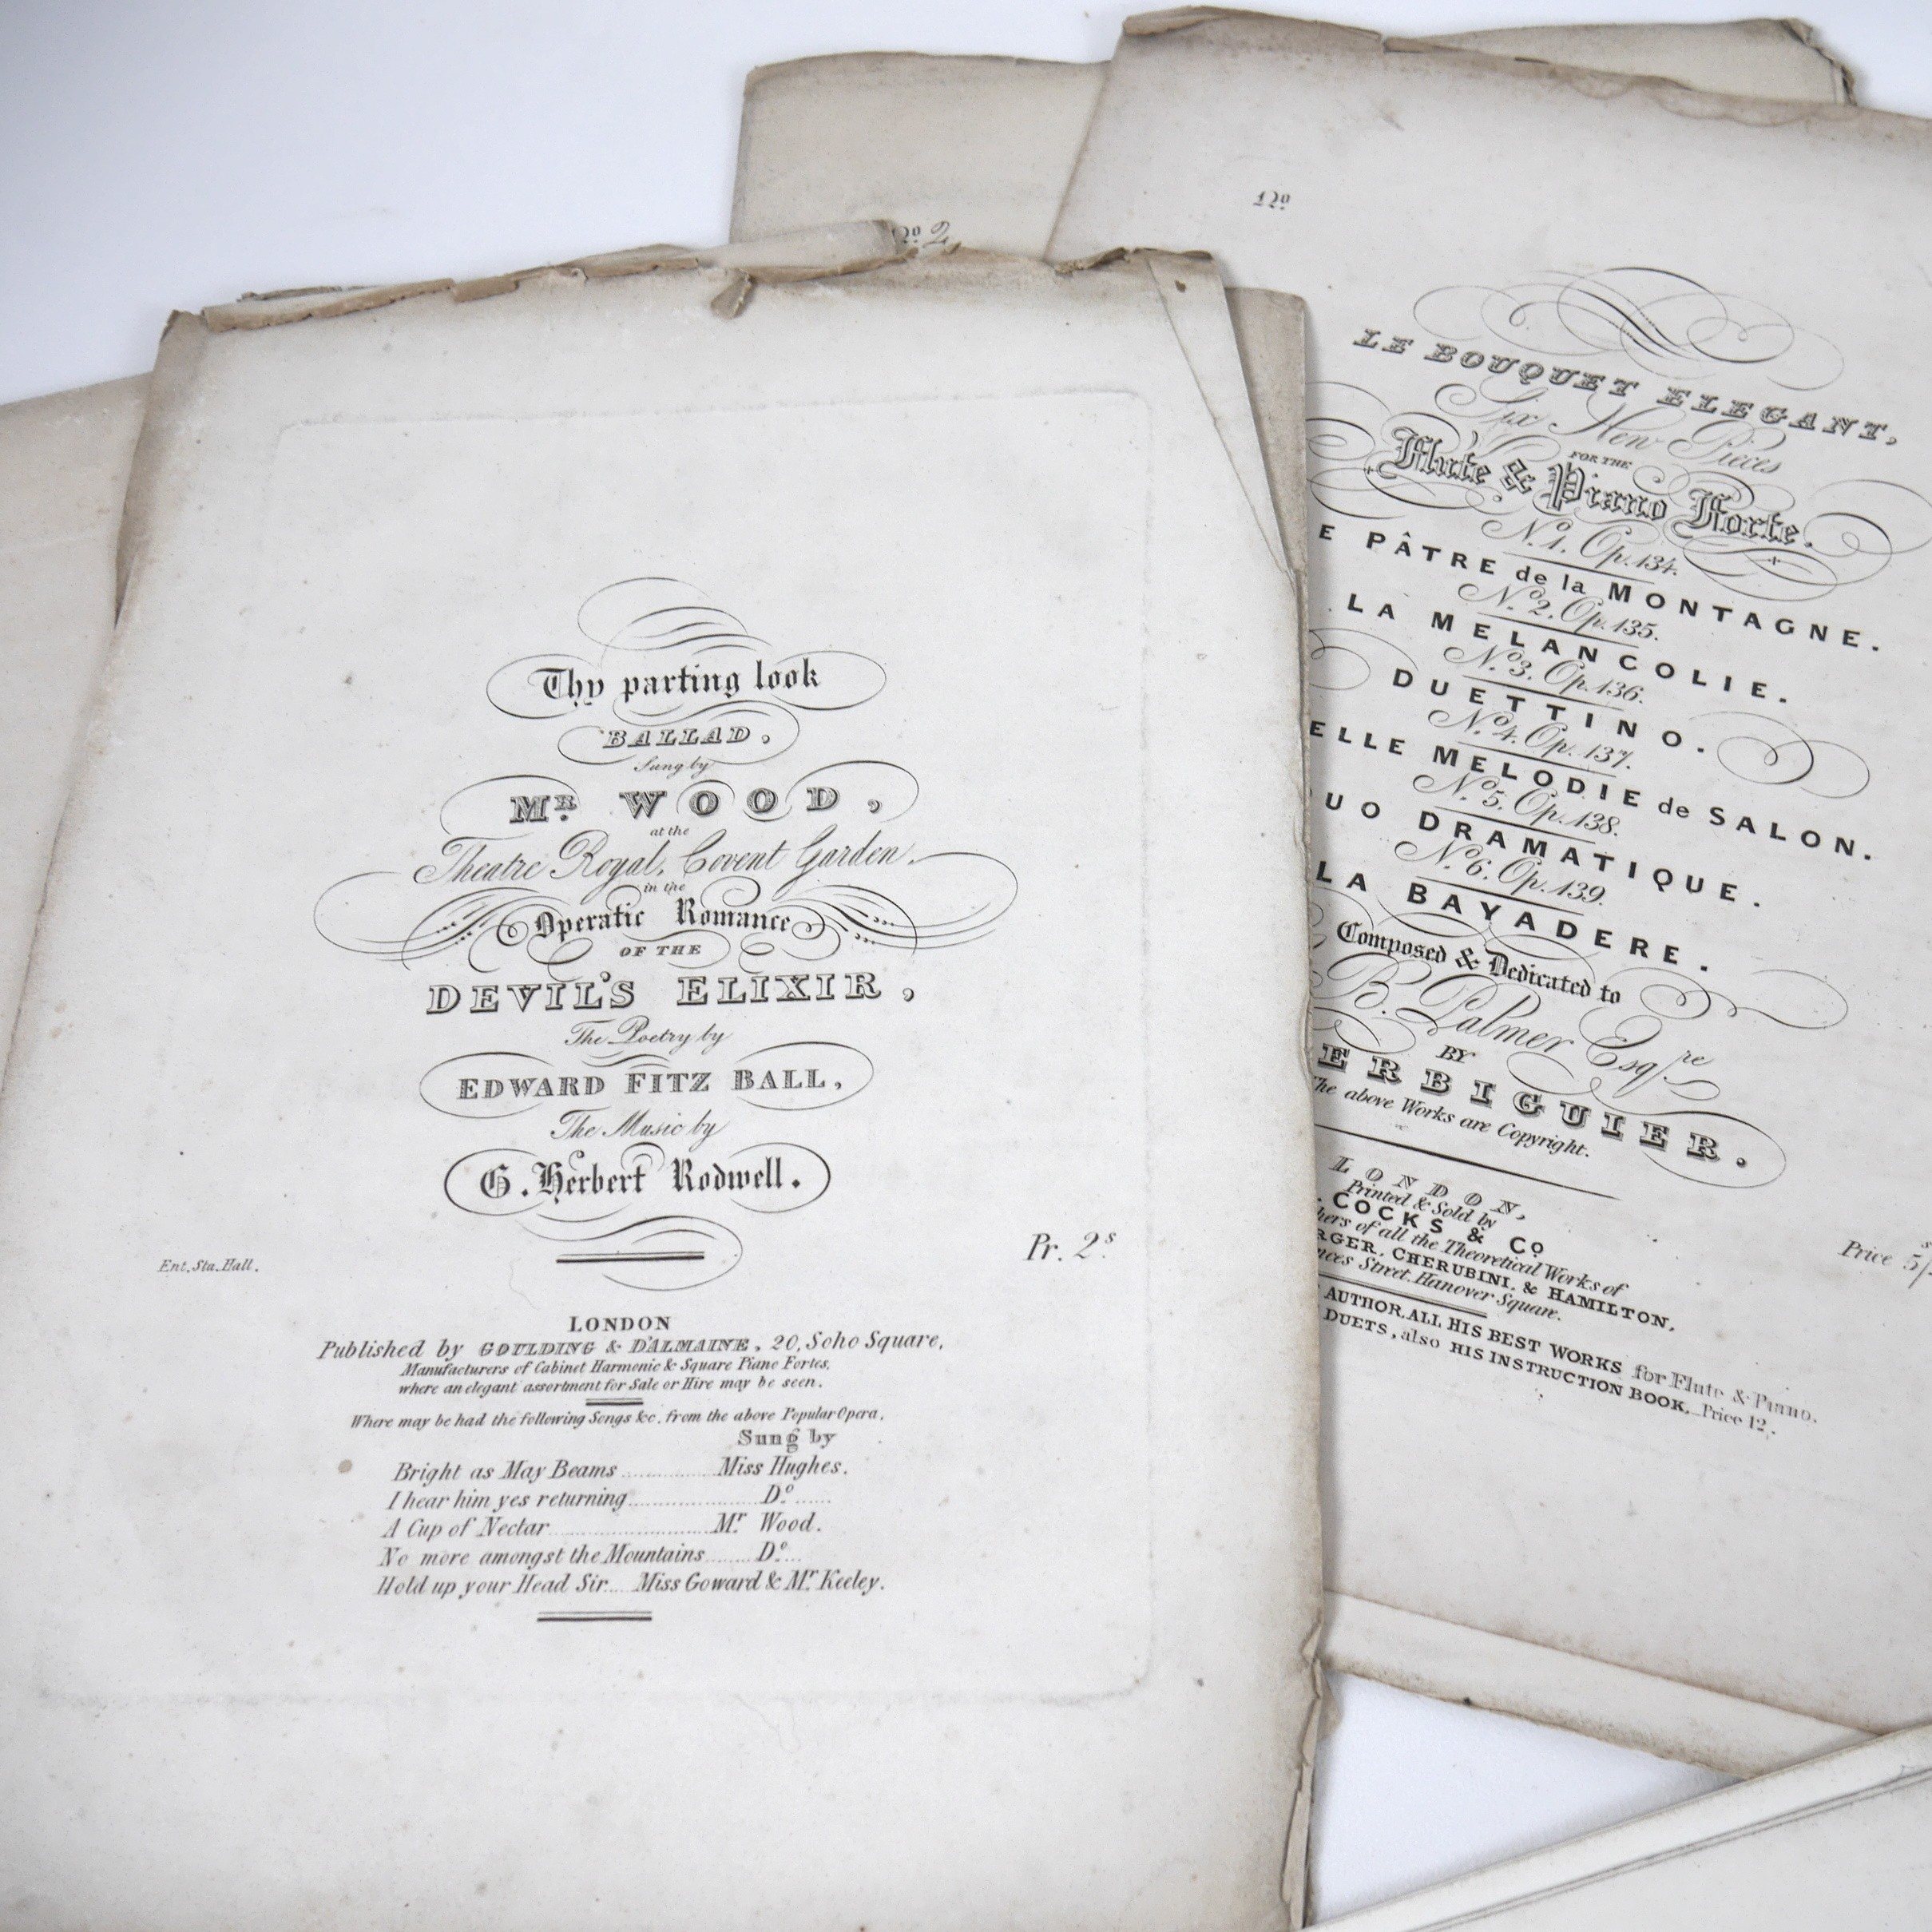 Thy parting look
BALLAD,
Sung by
Mr. WOOD,
at the
Theatre Royal, Covent Garden.
in the
Operatic Romance
OF THE
DEVIL'S ELIXIR,
The Poetry by
EDWARD FITZ BALL,
The Music by
G. Herbert Rodwell.
Ent. Sta. Hall.
Pr. 2s.
LONDON
Published by GOULDING & D'ALMAINE, 20, Soho Square,
Manufacturers of Cabinet Harmonic & Square Piano Fortes,
where an elegant assortment for Sale or Hire may be seen.
Where may be had the following Songs &c. from the above Popular Opera,
Sung by
Bright as May Beams ............ Miss Hughes.
I hear him yes returning ............ Do. ......
A Cup of Nectar ............ Mr. Wood.
No more amongst the Mountains ........ Do. ...
Hold up your Head Sir .... Miss Goward & Mr. Keeley.
No. 2
No.
LE BOUQUET ELEGANT,
Six New Pieces
FOR THE
Flute & Piano Forte.
No. 1. Op. 134.
E PÂTRE de la MONTAGNE.
No. 2. Op. 135.
LA MELANCOLIE.
No. 3. Op. 136.
DUETTINO.
No. 4. Op. 137.
ELLE MELODIE de SALON.
No. 5. Op. 138.
UO DRAMATIQUE.
No. 6. Op. 139.
LA BAYADERE.
Composed & Dedicated to
B. Palmer Esqre
BY
ERBIGUIER.
The above Works are Copyright.
LONDON,
Printed & Sold by
COCKS & Co
hers of all the Theoretical Works of
RGER, CHERUBINI, & HAMILTON,
nces Street, Hanover Square.
Price 5/
AUTHOR, ALL HIS BEST WORKS for Flute & Piano.
DUETS, also HIS INSTRUCTION BOOK, Price 12.